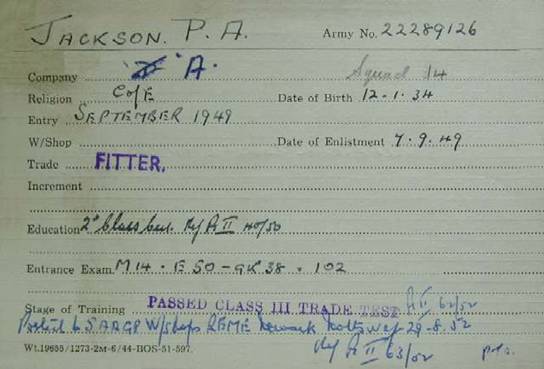 JACKSON. P. A. Army No. 22289126
Company "A". Squad 14
Religion C of E Date of Birth 12.1.34
Entry SEPTEMBER 1949
W/Shop Date of Enlistment 7.9.49
Trade FITTER.
Increment
Education 2° Class Cert. A II 40/50
Entrance Exam. M 14 . E 50 - GK 38 . 102
Stage of Training PASSED CLASS III TRADE TEST A II 62/52
Posted to W/Shops REME Newark Notts wef 29-8.52
A II 63/52
Wt.19655/1273-2M-6/44-BOS-51-597.